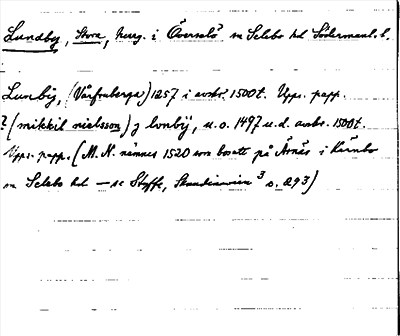 Lundby, Stora, herrg. i Överselö sn Selebo hd Söderman. l.
Lunby, (Vårfruberga) 1257 i avskr. 1500t. Upps. papp.
? (mikkil nielsson) j lonbÿ, u.o. 1497 u.d. avskr. 1500t.
Upps. papp. (M. N. nämnes 1520 som bosatt på Årnäs i Kärnbo
sn Selebo hd — se Styffe, Skandinavien 3 s. 293)